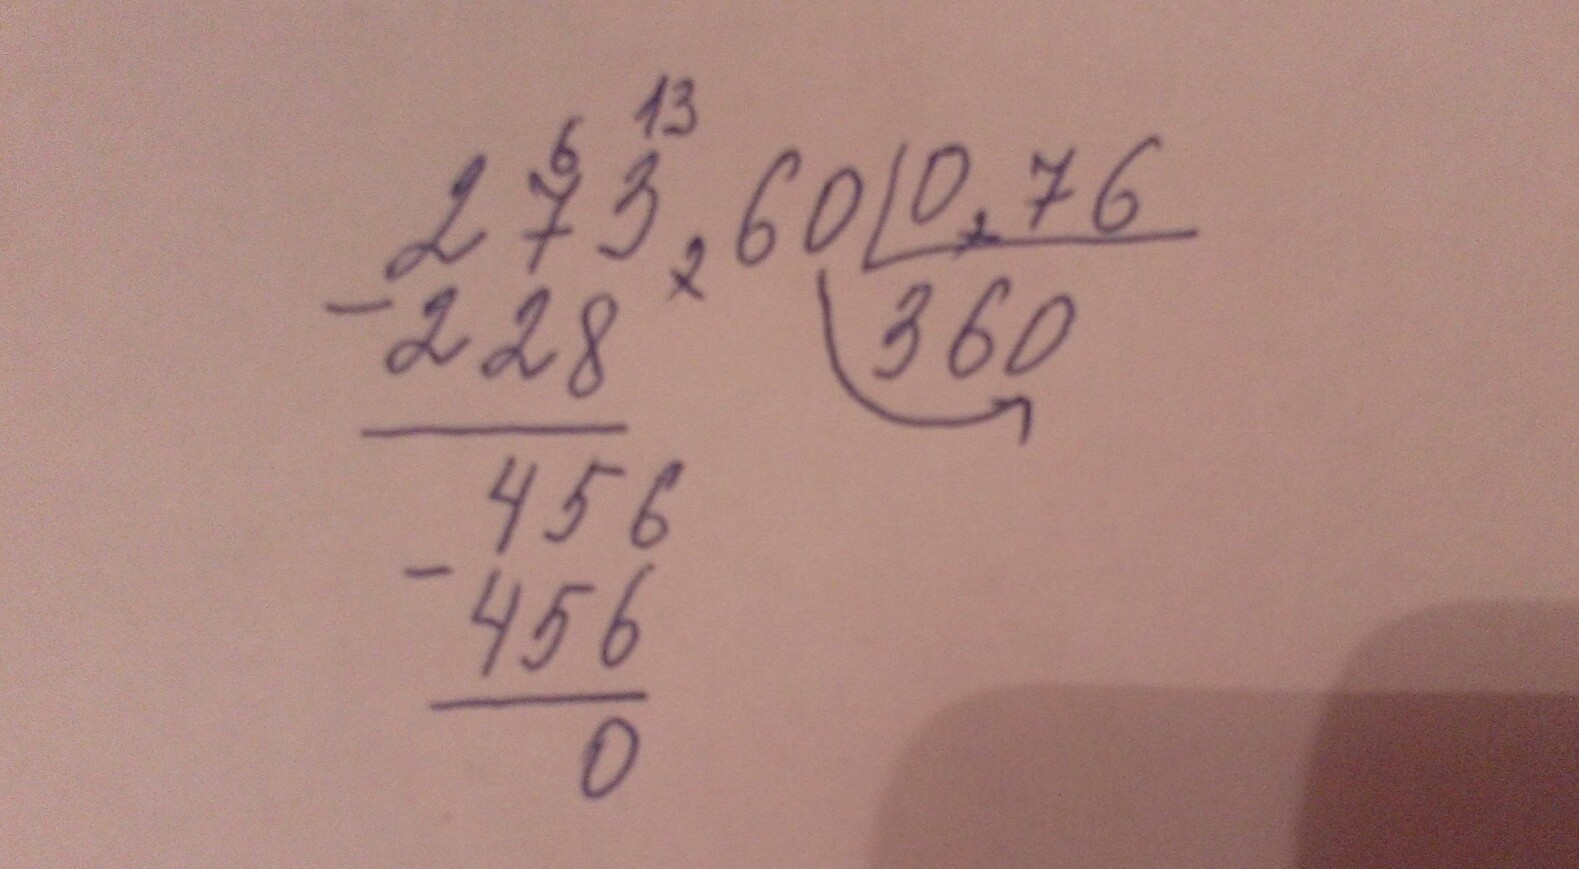 6 13
273,60 0,76
-228 360
456
-456
0